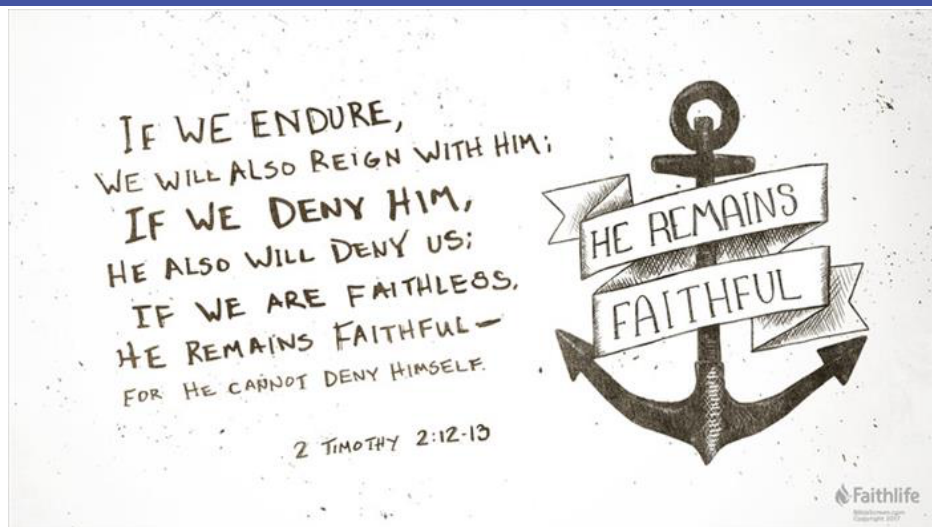 IF WE ENDURE,
WE WILL ALSO REIGN WITH HIM;
IF WE DENY HIM,
HE ALSO WILL DENY US;
IF WE ARE FAITHLESS,
HE REMAINS FAITHFUL—
FOR HE CANNOT DENY HIMSELF.
2 TIMOTHY 2:12-13
HE REMAINS
FAITHFUL
Faithlife
Copyright 2017